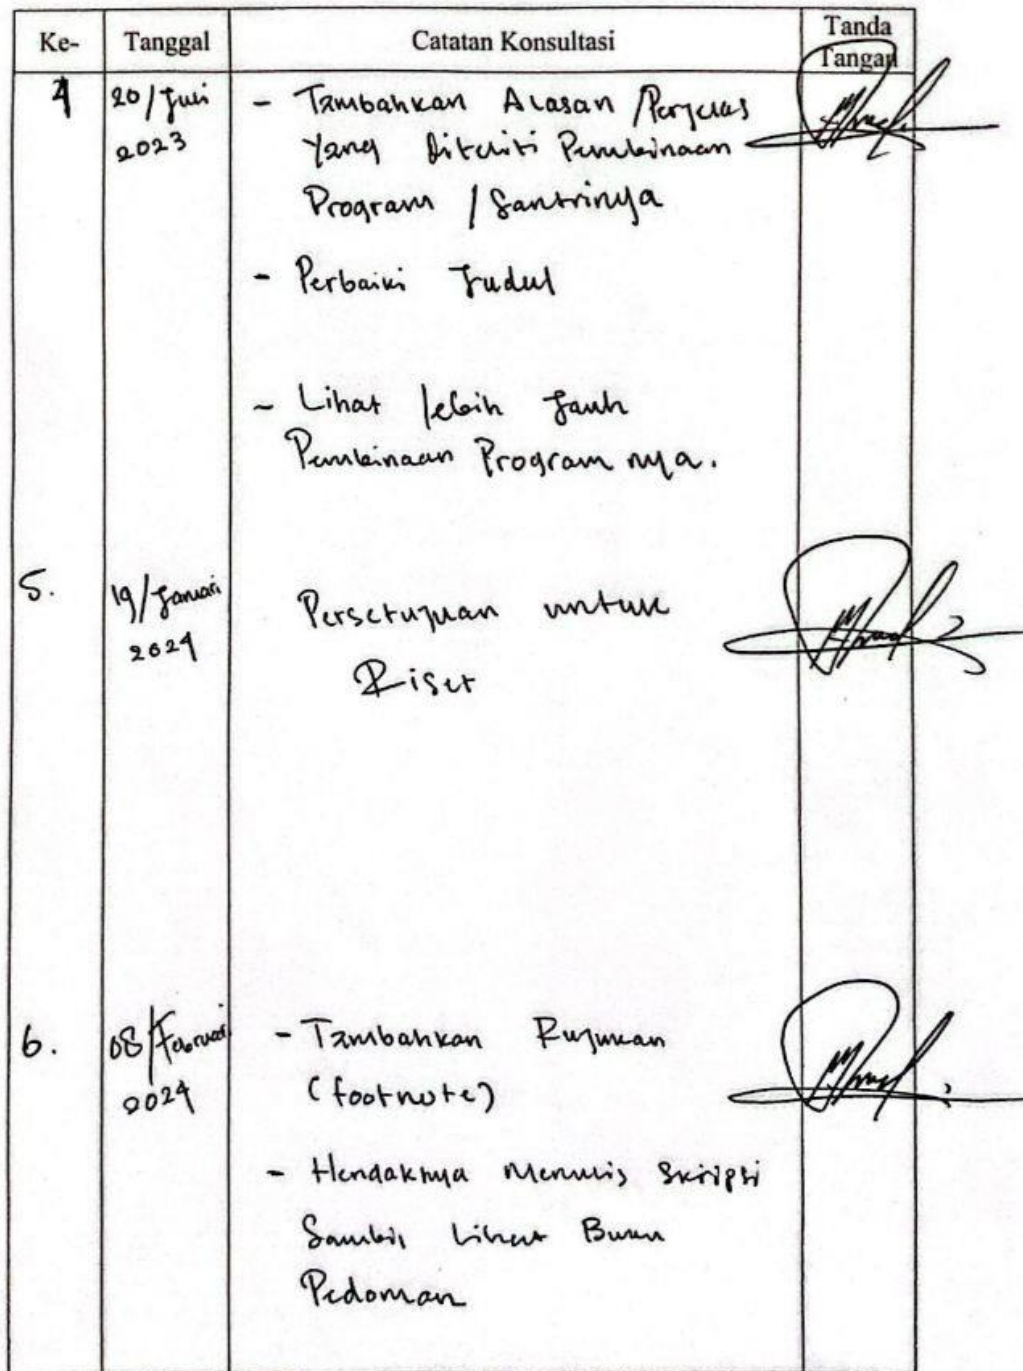 Ke- Tanggal Catatan Konsultasi Tanda Tangan
4 20/Juli 2023 - Tambahkan Alasan /Perjelas
Yang Diteliti Pembinaan
Program / Santrinya
- Perbaiki Judul
- Lihat lebih Jauh
Pembinaan Program nya.
5. 19/Januari 2024 Persetujuan untuk
Riset
6. 08/Februari 2024 - Tambahkan Rujukan
(footnote)
- Hendaknya Menulis Skripsi
Sambil Lihat Buku
Pedoman